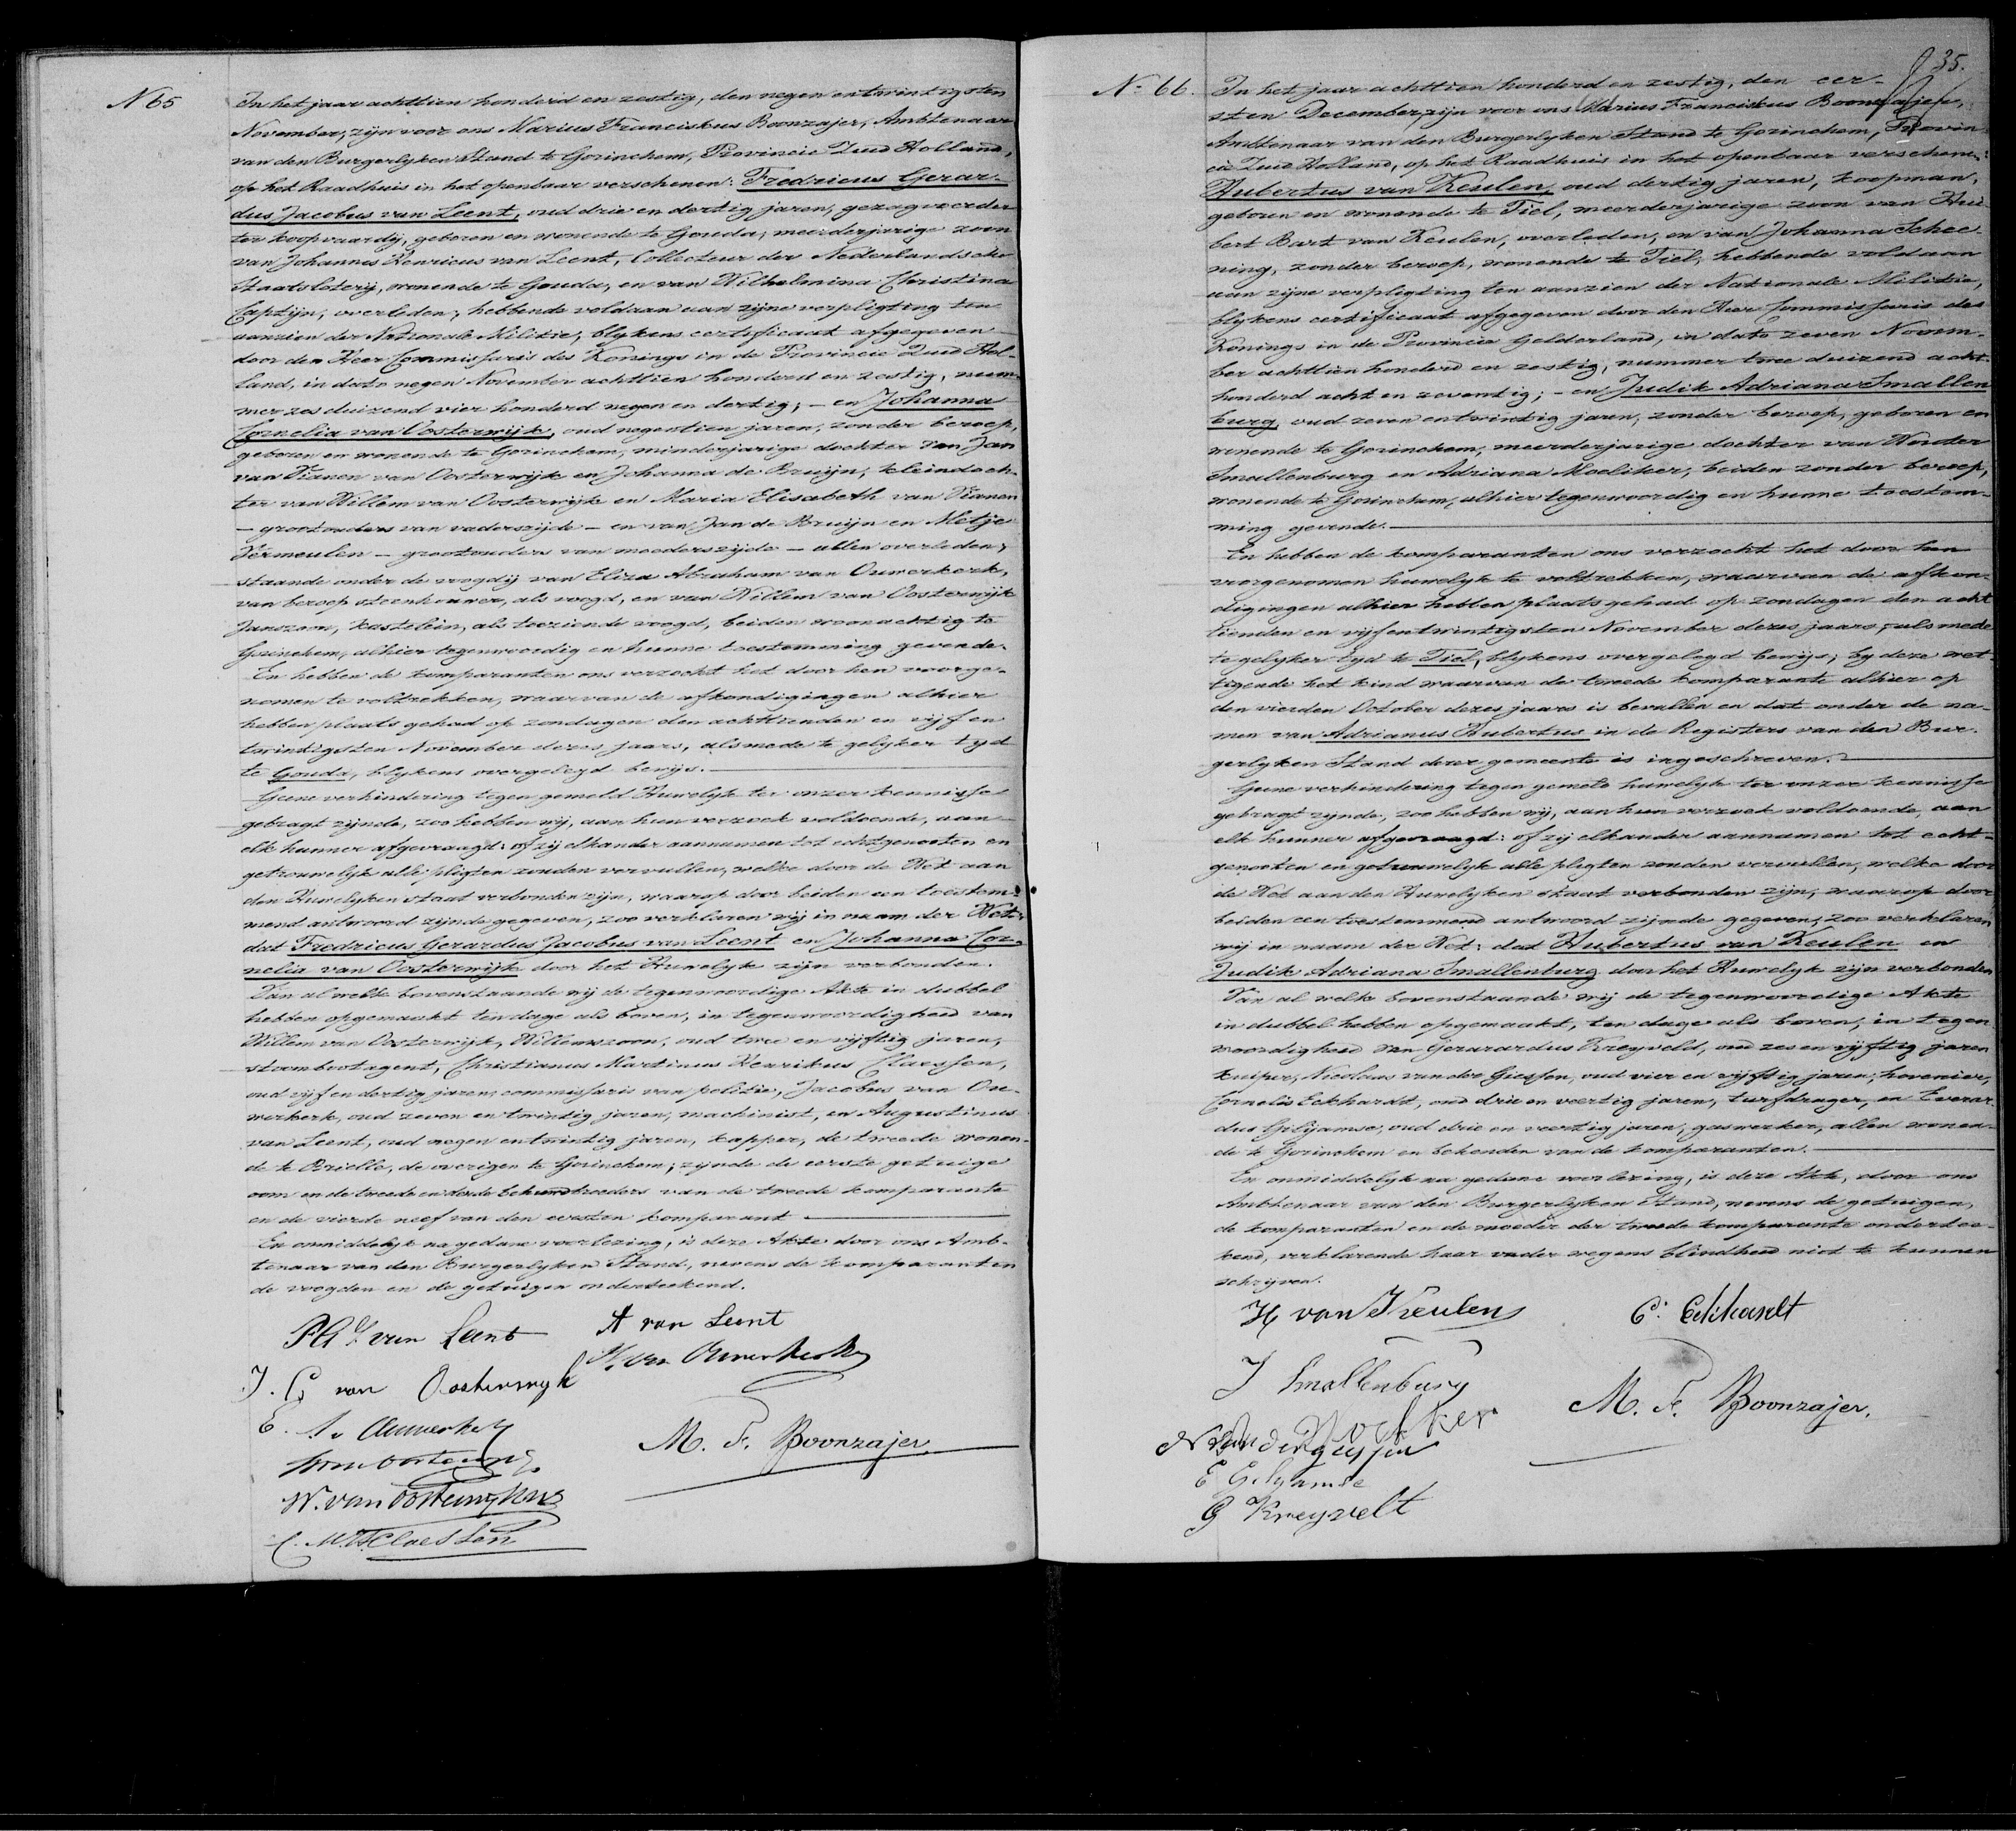 N 65
In het jaar achttien honderd en zestig, den negen entwintigsten
November, zijn voor ons Marius Franciskus Boonzajer, Ambtenaar
van den Burgerlyken Stand te Gorinchem, Provincie Zuid Holland,
op het Raadhuis in het openbaar verschenen: Fredricus Gerar-
dus Jacobus van Leent, oud drie en dertig jaren, gezagvoerder
ter koopvaardij, geboren en wonende te Gouda, meerderjarige zoon
van Johannes Henricus van Leent, Collecteur der Nederlandsche
Staatsloterij, wonende te Gouda, en van Wilhelmina Christina
Captijn, overleden; hebbende voldaan aan zijne verpligting ten
aanzien der Nationale Militie, blykens certificaat afgegeven
door den Heer Commissaris des Konings in de Provincie Zuid Hol-
land, in dato negen November achttien honderd en zestig, num-
mer zes duizend vier honderd negen en dertig; - en Johanna
Cornelia van Oosterwijk, oud negentien jaren, zonder beroep,
geboren en wonende te Gorinchem, minderjarige dochter van Jan
van Vianen van Oosterwijk en Johanna de Bruijn, kleindoch-
ter van Willem van Oosterwijk en Maria Elisabeth van Vianen
- grootouders van vaderszijde - en van Jan de Bruijn en Metje
Vermeulen - grootouders van moederszijde - allen overleden;
staande onder de voogdij van Eliza Abraham van Ouwerkerk,
van beroep steenhouwer, als voogd, en van Willem van Oosterwijk
Janszoon, kastelein, als toeziende voogd, beiden woonachtig te
Gorinchem, alhier tegenwoordig en hunne toestemming gevende.
En hebben de komparanten ons verzocht het door hen voorge-
nomen te voltrekken, waarvan de afkondigingen alhier
hebben plaats gehad op zondagen den achttienden en vijf en
twintigsten November dezes jaars, alsmede te gelyker tyd
te Gouda, blykens overgelegd bewijs.
Geene verhindering tegen gemeld Huwelyk ter onzer kennisse
gebragt zijnde, zoo hebben wij, aan hun verzoek voldoende, aan
elk hunner afgevraagd: of zij elkander aannamen tot echtgenooten en
getrouwelijk alle pligten zouden vervullen, welke door de Wet aan
den Huwelyken staat verbonden zijn, waarop door beiden een toestem-
mend antwoord zijnde gegeven, zoo verklaren wij in naam der Wet:
dat Fredricus Gerardus Jacobus van Leent en Johanna Cor-
nelia van Oosterwijk door het Huwelyk zijn verbonden.
Van al welk bovenstaande wij de tegenwoordige Akte in dubbel
hebben opgemaakt ten dage als boven, in tegenwoordigheid van
Willem van Oosterwijk, Willemszoon, oud twee en vijftig jaren,
stoombootagent, Christianus Martinus Henrikus Claessen,
oud vijf en dertig jaren, commissaris van politie, Jacobus van Ou-
werkerk, oud zeven en twintig jaren, machinist, en Augustinus
van Leent, oud negen en twintig jaren, tapper, de tweede wonen-
de te Brielle, de overigen te Gorinchem; zijnde de eerste getuige
oom en de tweede en derde behuwdbroeders van de tweede komparante
en de vierde neef van den eersten komparant
En onmiddelyk na gedane voorlezing, is deze Akte door ons Amb-
tenaar van den Burgerlyken Stand, nevens de komparanten
de voogden en de getuigen onderteekend.
van Leent
A van Leent
J. C van Oosterwyk
van Ouwerkerk
E. A. v Ouwerkerk
M. F. Boonzajer
W. van Oosterwyk
C. M. H. Claessen
35.
N: 66.
In het jaar achttien honderd en zestig, den eer-
sten December, zijn voor ons Marius Franciskus Boonzajer,
Ambtenaar van den Burgerlyken Stand te Gorinchem, Provin-
cie Zuid Holland, op het Raadhuis in het openbaar verschenen:
Hubertus van Keulen, oud dertig jaren, koopman,
geboren en wonende te Tiel, meerderjarige zoon van Hui-
bert Bart van Keulen, overleden, en van Johanna Schee-
ning, zonder beroep, wonende te Tiel, hebbende voldaan
aan zijne verpligting ten aanzien der Nationale Militie,
blykens certificaat afgegeven door den Heer Commissaris des
Konings in de Provincie Gelderland, in dato zeven Novem-
ber achttien honderd en zestig, nummer twee duizend acht-
honderd acht en zeventig; - en Judik Adriana Smallen
burg, oud zeven entwintig jaren, zonder beroep, geboren en
wonende te Gorinchem, meerderjarige dochter van Wouter
Smallenburg en Adriana Moeliker, beiden zonder beroep,
wonende te Gorinchem, alhier tegenwoordig en hunne toestem-
ming gevende.
En hebben de komparanten ons verzocht het door hen
voorgenomen huwelyk te voltrekken, waarvan de afkon-
digingen alhier hebben plaats gehad op zondagen den acht
tienden en vijfentwintigsten November dezes jaars, alsmede
te gelyker tyd te Tiel, blykens overgelegd bewijs; by deze wet-
tigende het kind waarvan de tweede komparante alhier op
den vierden October dezes jaars is bevallen en dat onder de na-
men van Adrianus Hubertus in de Registers van den Bur-
gerlyken Stand dezer gemeente is ingeschreven.
Geene verhindering tegen gemeld huwelyk ter onzer kennisse
gebragt zijnde, zoo hebben wij, aan hun verzoek voldoende, aan
elk hunner afgevraagd: of zij elkander aannamen tot echt-
genooten en getrouwelyk alle pligten zouden vervullen, welke door
de Wet aan den Huwelyken staat verbonden zijn, waarop door
beiden een toestemmend antwoord zijnde gegeven, zoo verklaren
wij in naam der Wet: dat Hubertus van Keulen en
Judik Adriana Smallenburg door het Huwelyk zijn verbonden
Van al welk bovenstaande wij de tegenwoordige Akte
in dubbel hebben opgemaakt, ten dage als boven, in tegen
woordigheid van Gerarardus Kreyveld, oud zes en vijftig jaren
kuiper, Nicolaas van der Giessen, oud vier en vijftig jaren, hovenier,
Cornelis Eckhardt, oud drie en veertig jaren, turfdrager, en Everar-
dus Gilyamse, oud drie en veertig jaren, gaswerker, allen wonen-
de te Gorinchem en bekenden van de komparanten.
En onmiddelyk na gedane voorlezing, is deze Akte, door ons
Ambtenaar van den Burgerlyken Stand, nevens de getuigen,
de komparanten en de moeder der tweede komparante onderteе-
kend, verklarende haar vader wegens blindheid niet te kunnen
schrijven.
H van Keulen
C: Eckhardt
J Smallenburg
M. F. Boonzajer.
N van der giessen
E Gilyamse
G Kreyvelt